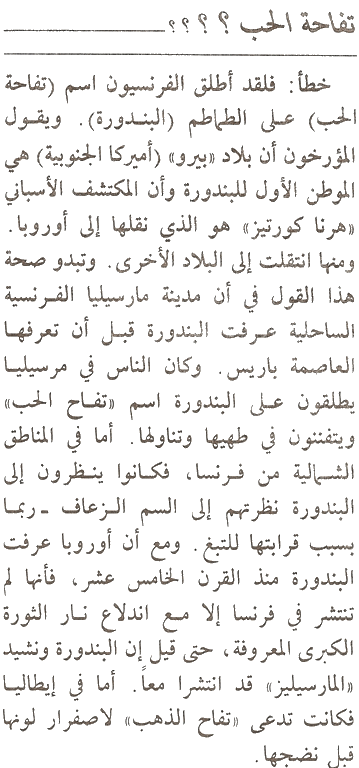 تفاحة الحب ؟ ؟ ؟ ؟ ؟
خطأ: فلقد أطلق الفرنسيون اسم (تفاحة
الحب) على الطماطم (البندورة). ويقول
المؤرخون أن بلاد «بيرو» (أميركا الجنوبية) هي
الموطن الأول للبندورة وأن المكتشف الأسباني
«هرنا كورتيز» هو الذي نقلها إلى أوروبا.
ومنها انتقلت إلى البلاد الأخرى. وتبدو صحة
هذا القول في أن مدينة مارسيليا الفرنسية
الساحلية عرفت البندورة قبل أن تعرفها
العاصمة باريس. وكان الناس في مرسيليا
يطلقون على البندورة اسم «تفاح الحب»
ويتفننون في طهيها وتناولها. أما في المناطق
الشمالية من فرنسا، فكانوا ينظرون إلى
البندورة نظرتهم إلى السم الزعاف - ربما
بسبب قرابتها للتبغ. ومع أن أوروبا عرفت
البندورة منذ القرن الخامس عشر، فأنها لم
تنتشر في فرنسا إلا مع اندلاع نار الثورة
الكبرى المعروفة، حتى قيل إن البندورة ونشيد
«المارسيليز» قد انتشرا معاً. أما في إيطاليا
فكانت تدعى «تفاح الذهب» لاصفرار لونها
قبل نضجها.